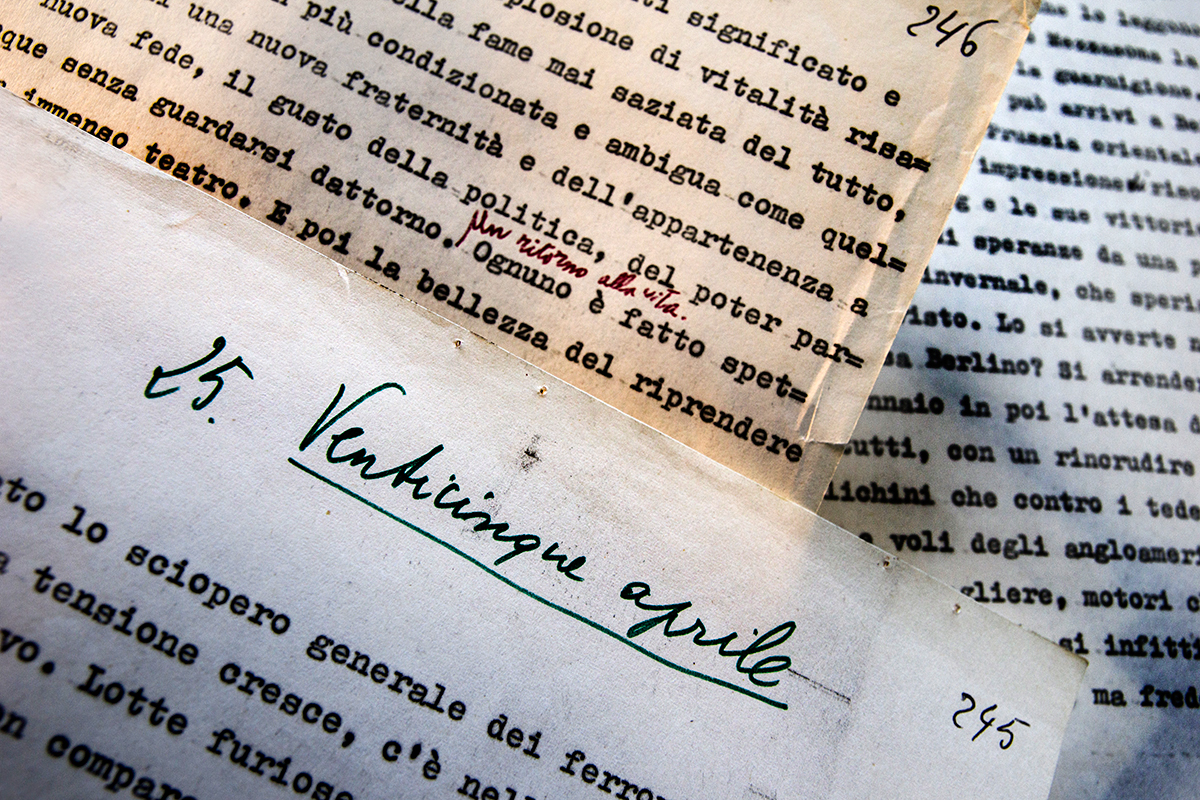 246
ti significato e
plosione di vitalità risa=
ella fame mai saziata del tutto,
più condizionata e ambigua come quel=
di una nuova fraternità e dell'appartenenza a
nuova fede, il gusto della politica, del poter par=
que senza guardarsi dattorno. Ognuno è fatto spet=
Un ritorno alla vita.
immenso teatro. E poi la bellezza del riprendere
che lo leggono
la
la guarnigione
può arrivi a Be
russia oriental
impressione
g e le sue vittori
i speranze da una
invernale, che speri
isto. Lo si avverte n
sa Berlino? Si arrende
nnaio in poi l'attesa d
tutti, con un rincrudire
lichini che contro i tede
e voli degli angloameri
gliere, motori c
si infitti
ma fred
25. Venticinque aprile
245
to lo sciopero generale dei ferro
a tensione cresce, c'è nel
vo. Lotte furiose
on compar